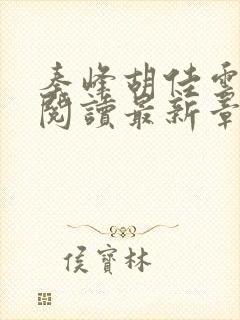 秦峰胡佳雪
閱讀最新章
侯寶林